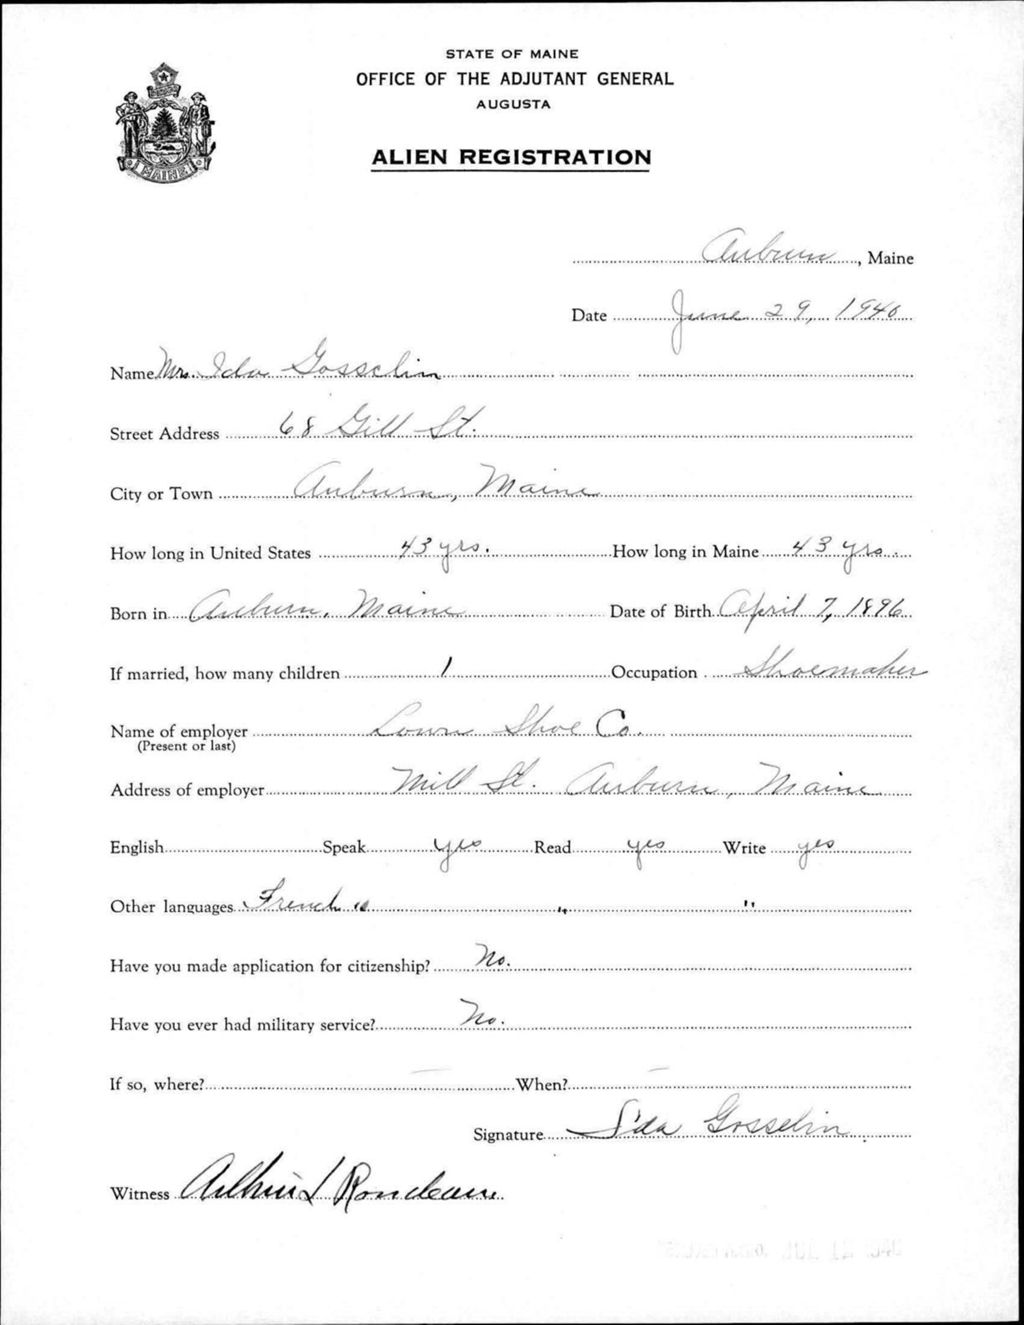 STATE OF MAINE
OFFICE OF THE ADJUTANT GENERAL
AUGUSTA
ALIEN REGISTRATION
MAINE
Auburn, Maine
Date June 29, 1940
Name Mrs. Ida Gosselin
Street Address 68 Gill St.
City or Town Auburn, Maine
How long in United States 43 yrs. How long in Maine 43 yrs.
Born in Auburn, Maine Date of Birth April 7, 1896
If married, how many children 1 Occupation Shoemaker
Name of employer Lown Shoe Co.
(Present or last)
Address of employer Mill St. Auburn, Maine
English Speak yes Read yes Write yes
Other languages French " " "
Have you made application for citizenship? No.
Have you ever had military service? No.
If so, where? — When? —
Signature Ida Gosselin
Witness Rondeau